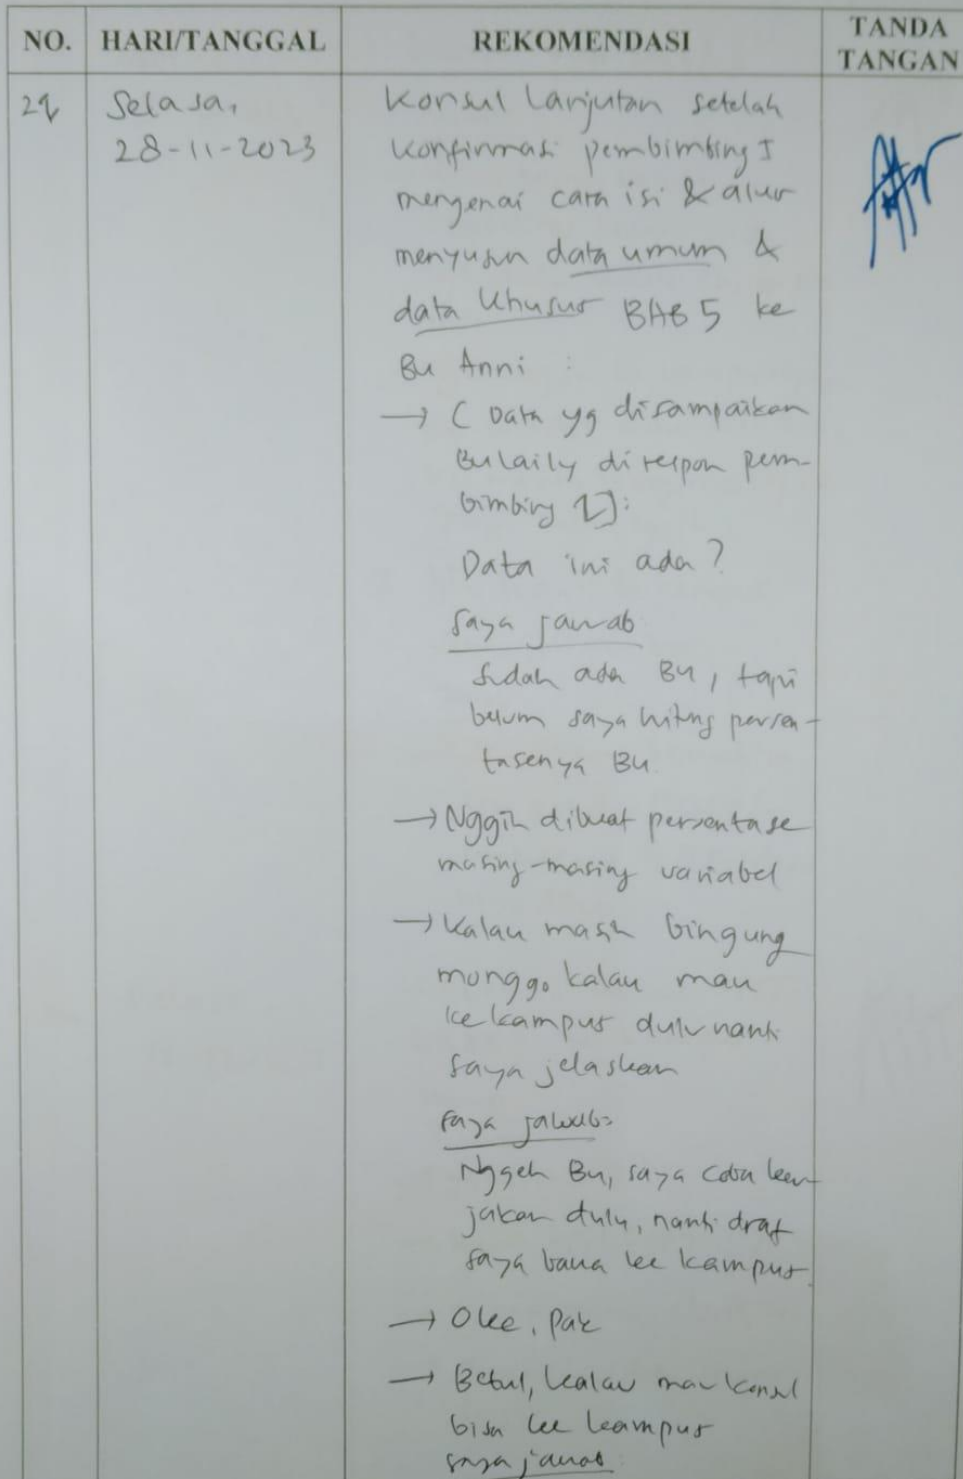 NO. HARI/TANGGAL REKOMENDASI TANDA TANGAN
Selasa, Konsul Lanjutan setelah
28-11-2023 konfirmasi pembimbing I
mengenai cara isi & alur
menyusun data umum &
data khusus BAB 5 ke
Bu Anni :
→ ( Data yg disampaikan
Bu laily di respon pem-
bimbing 2]:
Data ini ada?
saya jawab
Sudah ada Bu, tapi
belum saya hitung persen-
tasenya Bu
→ Nggih dibuat persentase
masing-masing variabel
→ Kalau masih bingung
monggo kalau mau
ke kampus dulu nanti
saya jelaskan
saya jawab:
Nggeh Bu, saya coba ker-
jakan dulu, nanti draf
saya bawa ke kampus.
→ Oke, Pak
→ Betul, kalau mau konsul
bisa ke kampus
saya jawab: